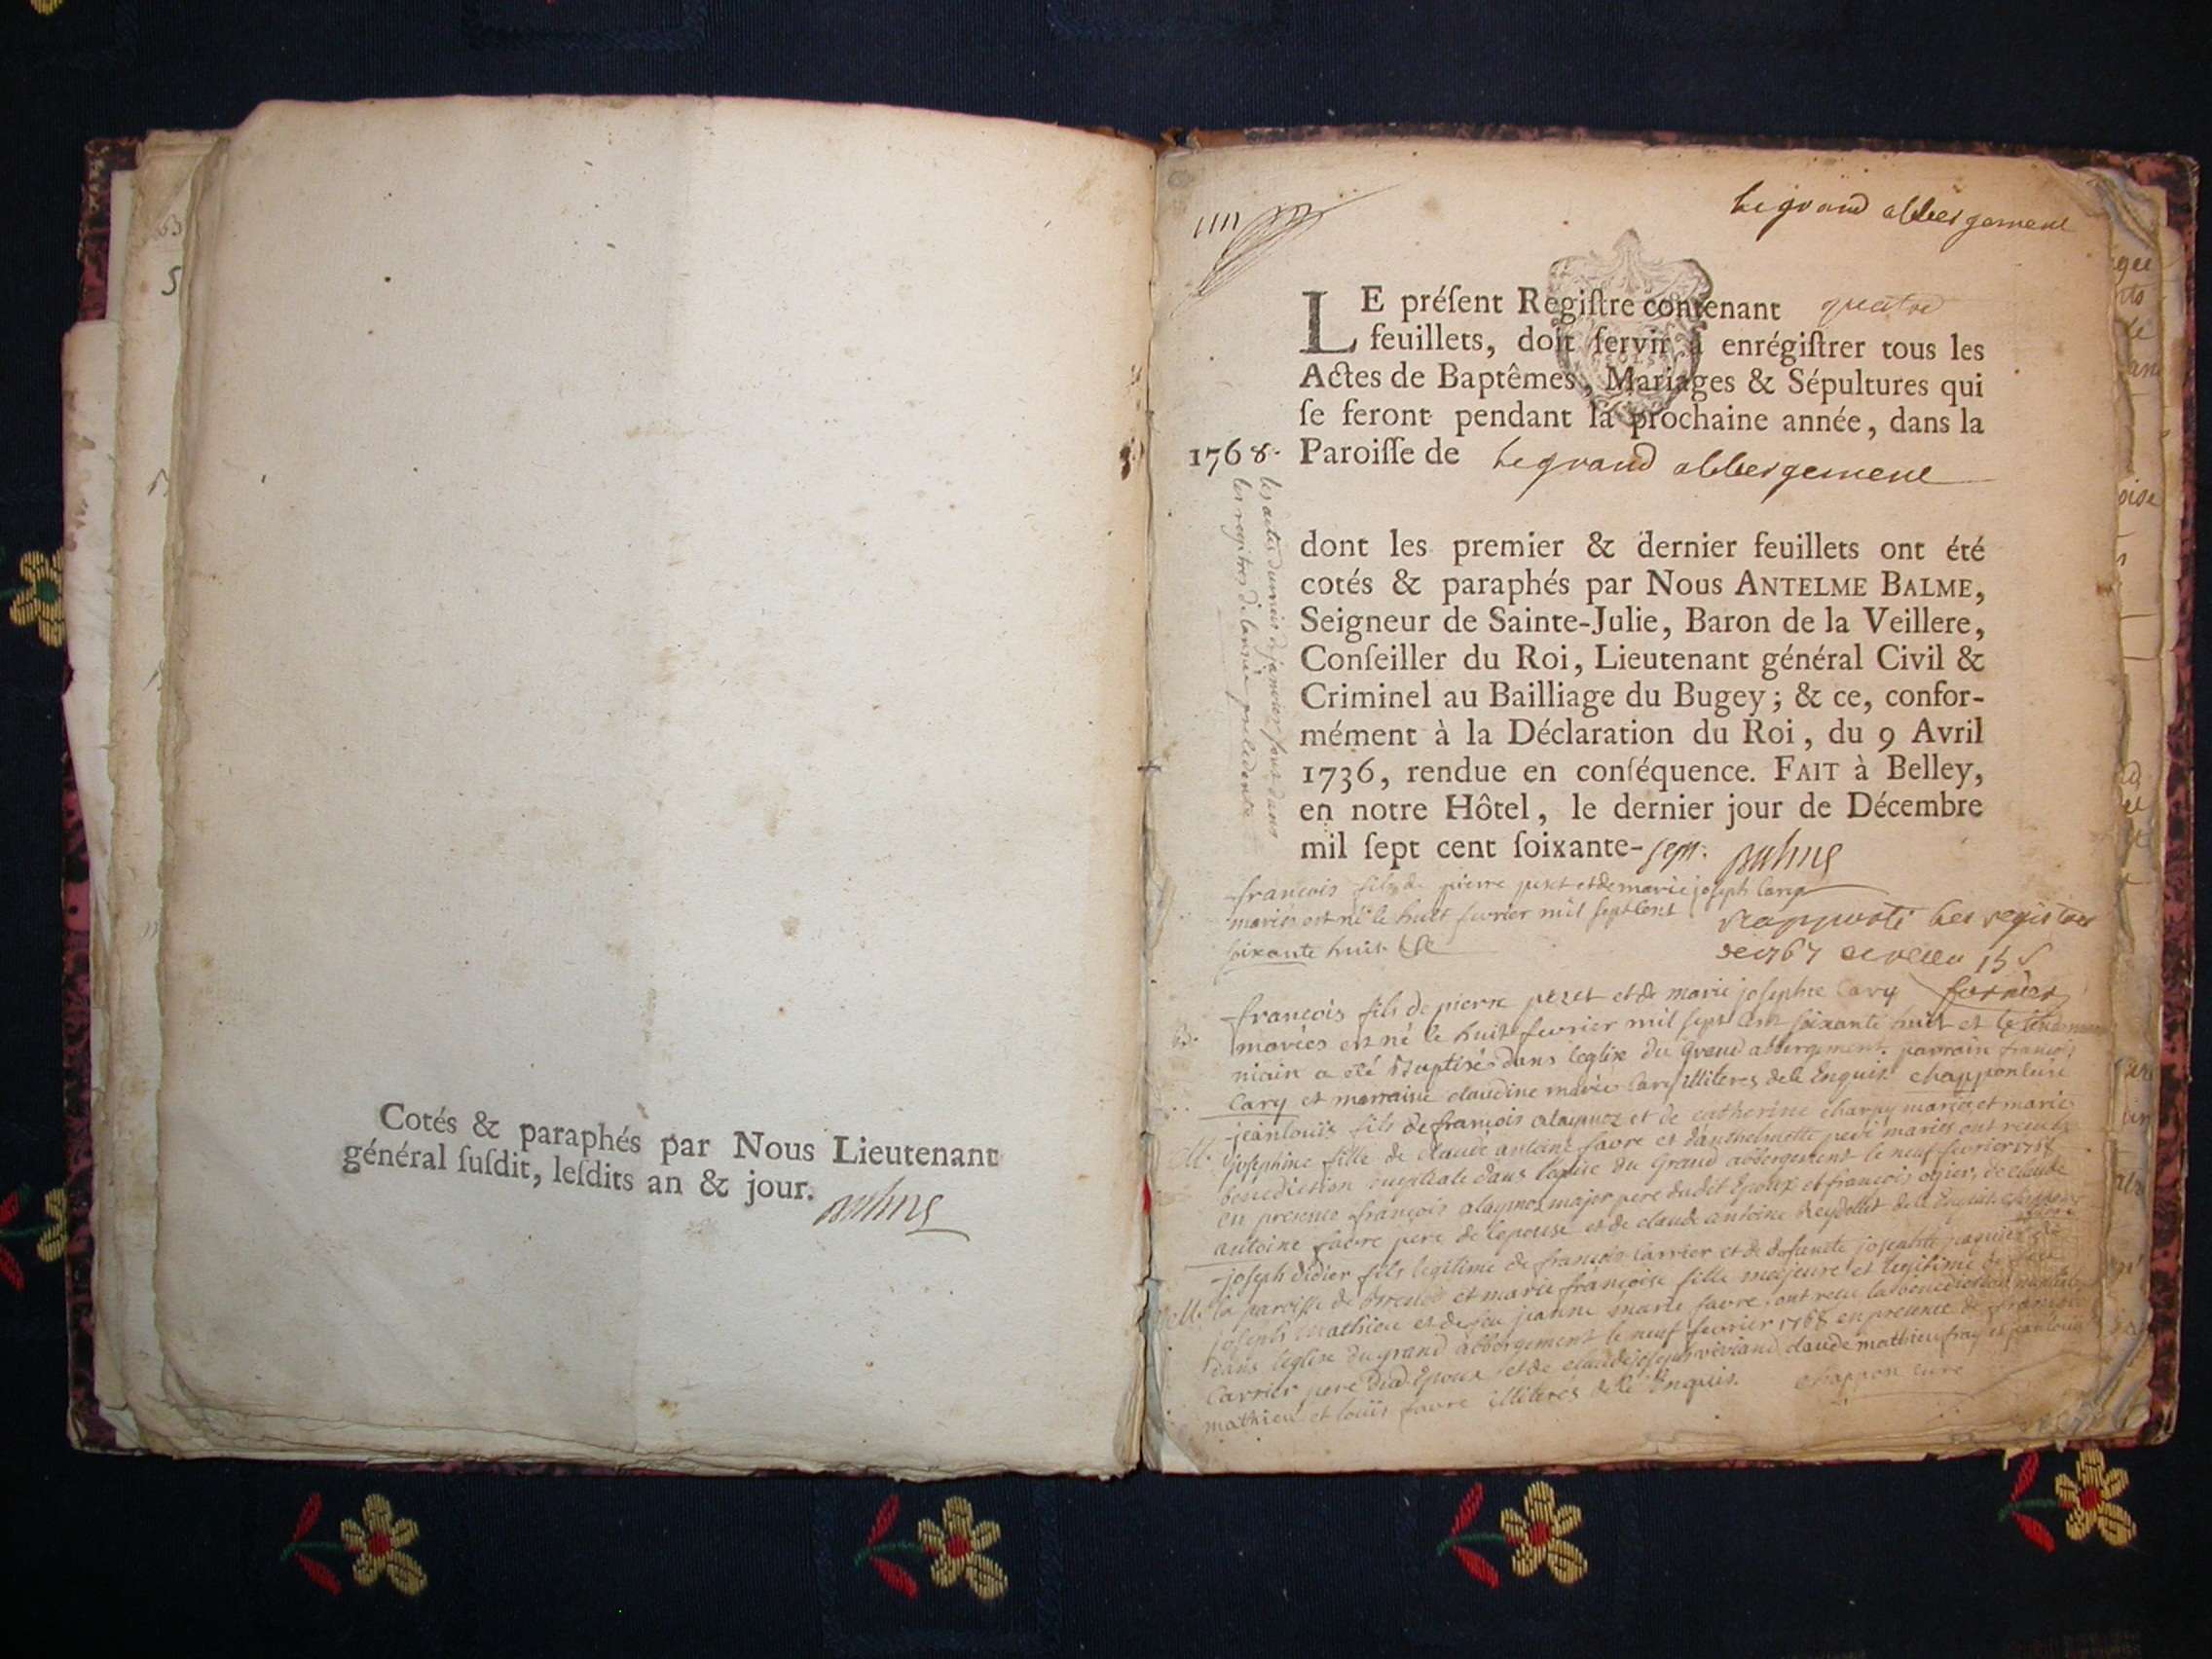 Cotés & paraphés par Nous Lieutenant
général ſuſdit, leſdits an & jour.
Le grand abbergement
LE préſent Regiſtre contenant quatre
feuillets, doit ſervir à enrégiſtrer tous les
Actes de Baptêmes, Mariages & Sépultures qui
ſe feront pendant la prochaine année, dans la
1768. Paroiſſe de Le grand abbergement
dont les premier & dernier feuillets ont été
cotés & paraphés par Nous ANTELME BALME,
Seigneur de Sainte-Julie, Baron de la Veillere,
Conſeiller du Roi, Lieutenant général Civil &
Criminel au Bailliage du Bugey; & ce, confor-
mément à la Déclaration du Roi, du 9 Avril
1736, rendue en conſéquence. FAIT à Belley,
en notre Hôtel, le dernier jour de Décembre
mil ſept cent ſoixante-sept. Balme
les actes du mois de janvier sont dans
les registres de l'année précédente
francois fils de pierre et de marie joseph Cary
mariés est né le huit fevrier mil sept cent
soixante huit
Rapporté les registres
de 1767
francois fils de pierre et de marie josephe Cary
B. mariés est né le huit fevrier mil sept cent soixante huit et le
main a été Baptisé dans leglise du Grand abbergement. parrain francois
Cary et marraine claudine marie Cary illiteres de ce Enquis.
jean louis fils de francois alaymoz et de catherine charpy mariés et marie
M. josephine fille de claude antoine favre et mariés ont recu la
benediction nuptiale dans leglise du Grand abbergement le neuf fevrier 1768
en presence francois alaymoz major pere dudit Epoux et francois ogier, de claude
antoine favre pere de lepouse et de claude antoine Reydellet de ce Enquis
joseph didier fils legitime de francois Carrier et de defuncte josephte
M. la paroisse de et marie francoise fille majeure et legitime de feu
joseph mathieu et de feu jeanne marie favre, ont recu la benediction nuptiale
dans leglise du grand abbergement le neuf fevrier 1768 en presence de francois
Carrier pere dud. Epoux et de claude joseph claude mathieu
mathieu et louis favre illiterés de ce Enquis. chappon curé